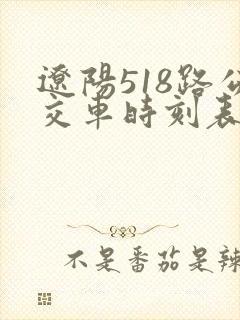 遼陽518路公
交車時刻表
不是番茄是辣